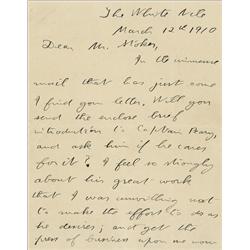 The White Nile
March 12th 1910
Dear Mr. Stokes,
In the immense
mail that has just come
I find your letter. Will you
send the enclosed brief
introduction to Captain Peary,
and ask him if he cares
for it? I feel so strongly
about his great work
that I was unwilling not
to make the effort to do as
he desires; and yet the
press of business upon me now